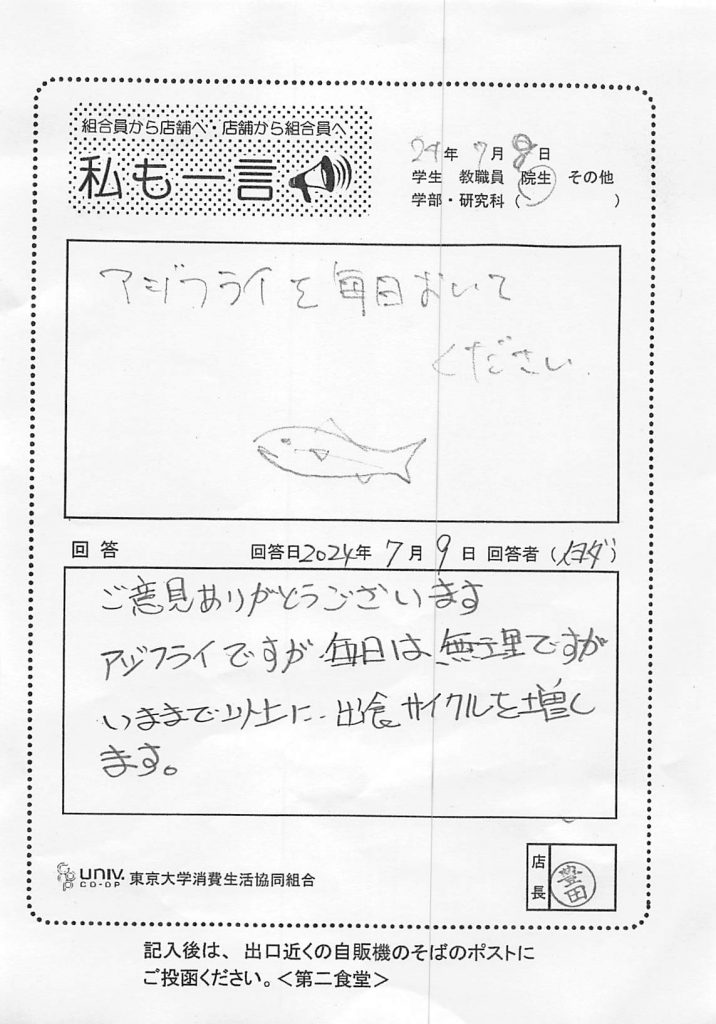 組合員から店舗へ・店舗から組合員へ
私も一言
24年 7月 8日
学生 教職員 院生 その他
学部・研究科( )
アジフライを毎日おいて
ください.
回答 回答日2024年 7月 9日 回答者(イヨダ)
ご意見ありがとうございます
アジフライですが 毎日は 無理ですが
いままで以上に、出食サイクルを増し
ます。
UNIV. CO-OP 東京大学消費生活協同組合
店長 豊田
記入後は、出口近くの自販機のそばのポストに
ご投函ください。<第二食堂>